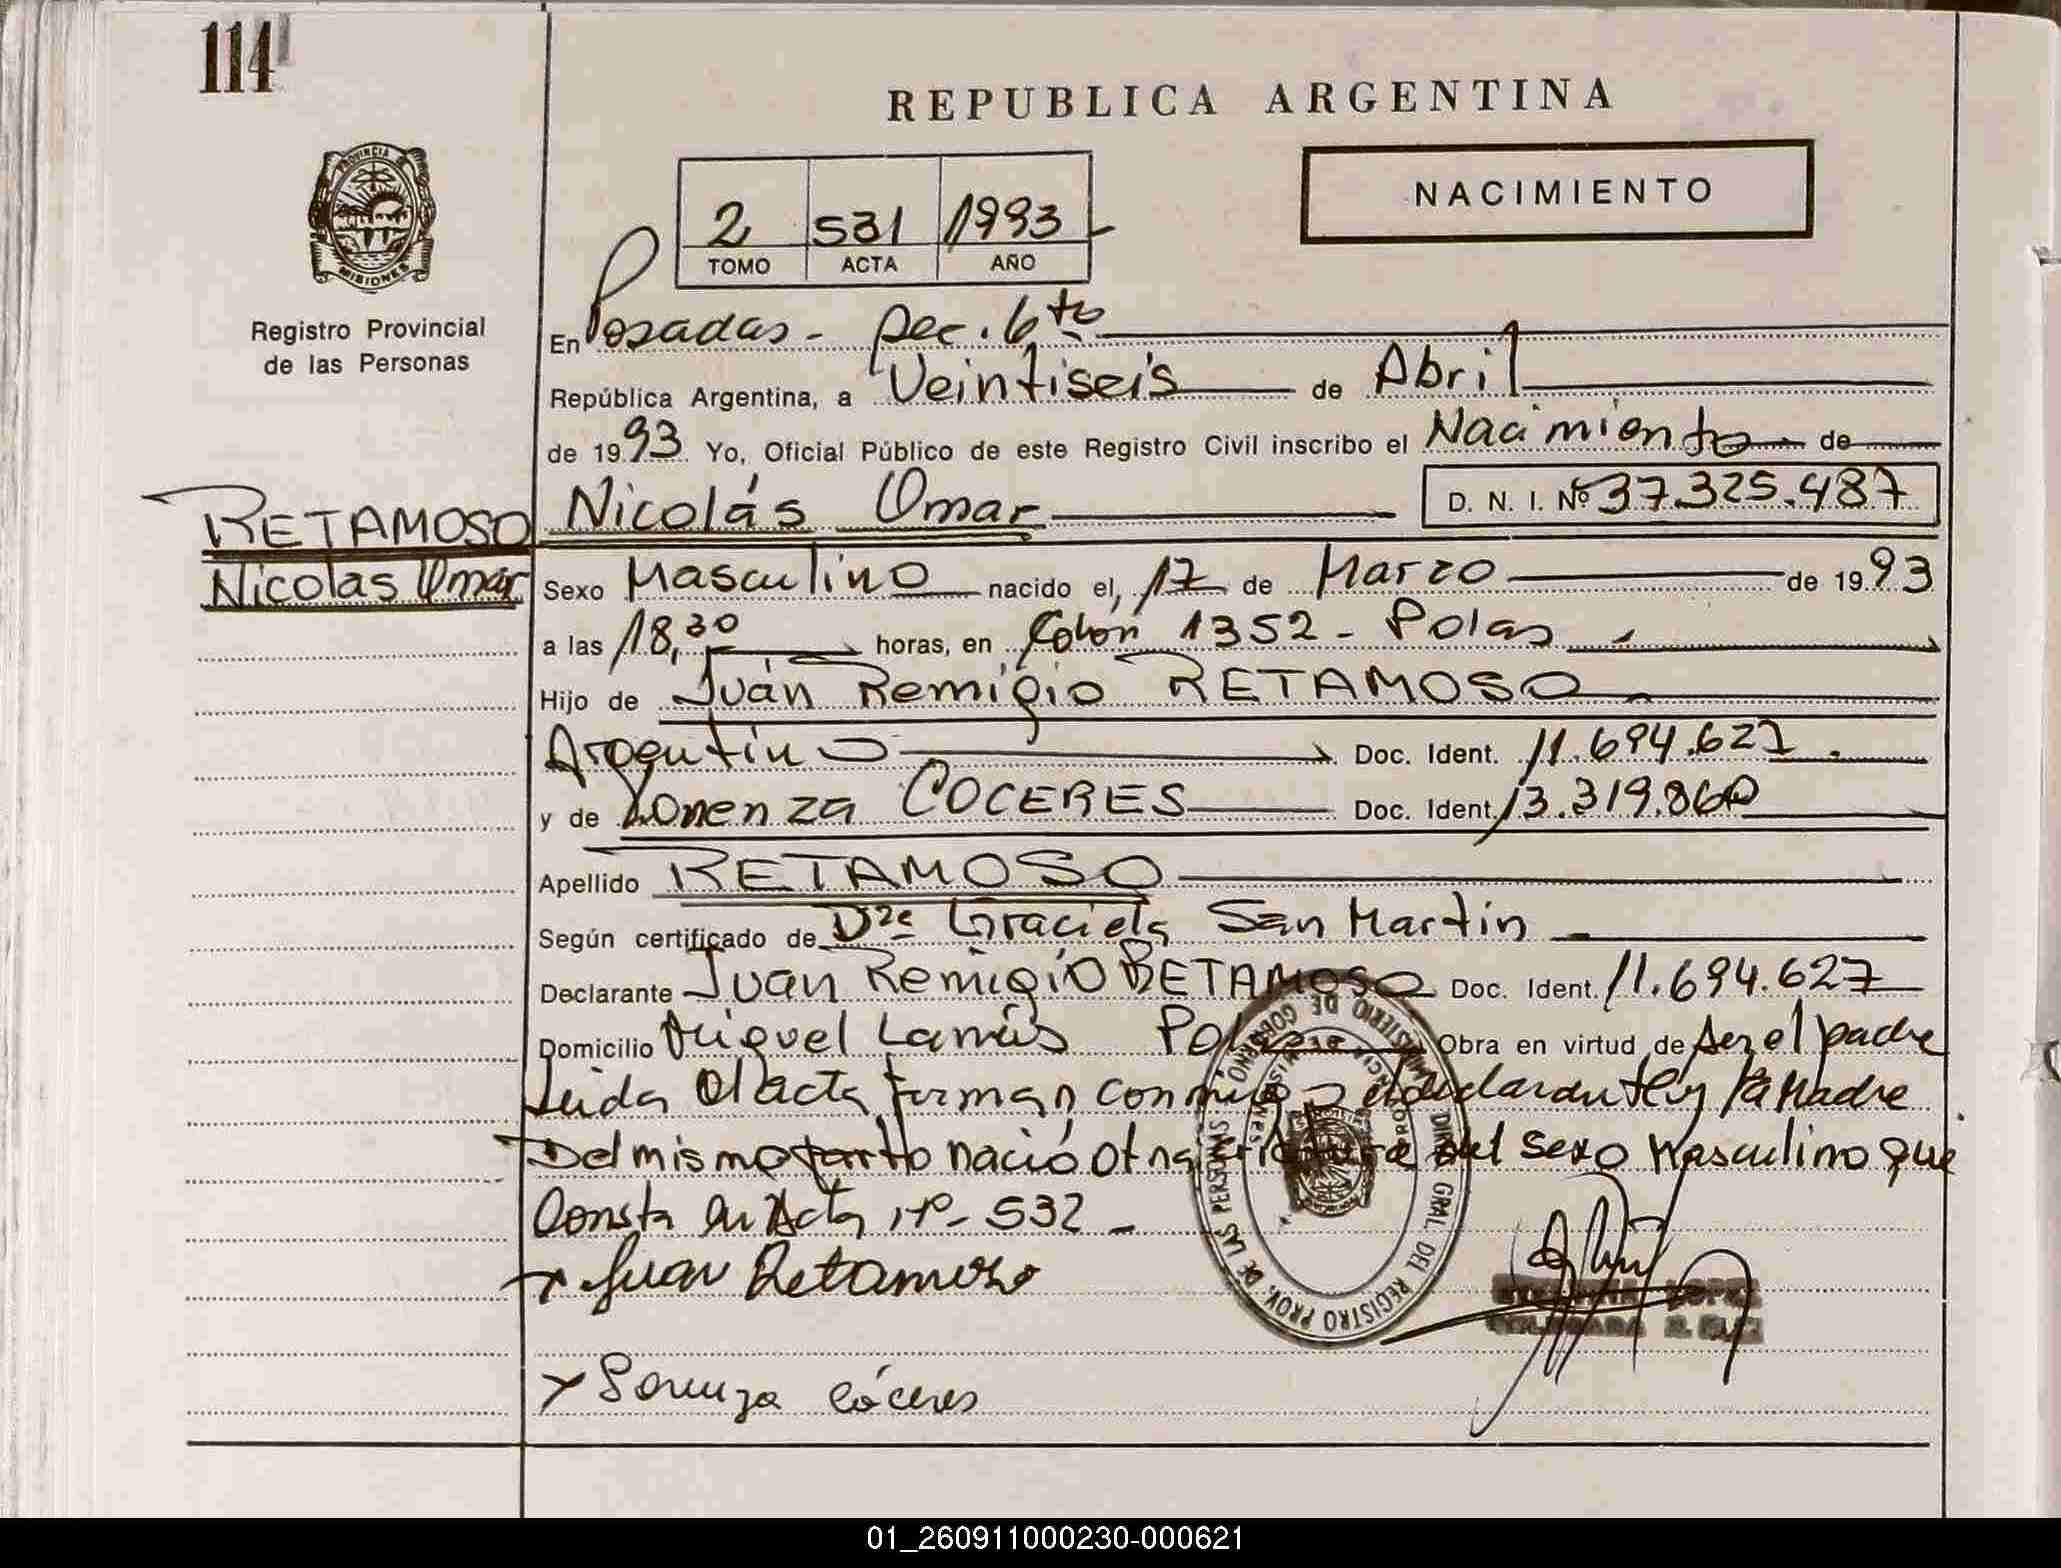 114
REPUBLICA ARGENTINA
NACIMIENTO
2 531 1993
TOMO ACTA AÑO
PROVINCIA DE
MISIONES
Registro Provincial
de las Personas
En Posadas - Sec. 6ta
República Argentina, a Veintiseis de Abril
de 1993 Yo, Oficial Público de este Registro Civil inscribo el Nacimiento de
RETAMOSO
Nicolas Omar
Nicolás Omar D. N. I. Nº 37.325.487
Sexo Masculino nacido el, 17 de Marzo de 1993
a las 18,30 horas, en Colón 1352 - Pdas
Hijo de Juan Remigio RETAMOSO
Argentino Doc. Ident. 11.694.627
y de Lorenza COCERES Doc. Ident. 13.319.860
Apellido RETAMOSO
Según certificado de Dra Graciela San Martin
Declarante Juan Remigio RETAMOSO Doc. Ident. 11.694.627
Domicilio Miguel Lanús Obra en virtud de ser el padre
Leida el acta firman conmigo el declarante y la Madre
Del mismo parto nació otra criatura del sexo Masculino que
Consta en Acta Nº - 532 -
x Juan Retamoso
x Lorenza Cóceres
LOPEZ
DIREC. GRAL. DEL REGISTRO PROV. DE LAS PERSONAS
MINISTERIO DE GOBIERNO
01_260911000230-000621